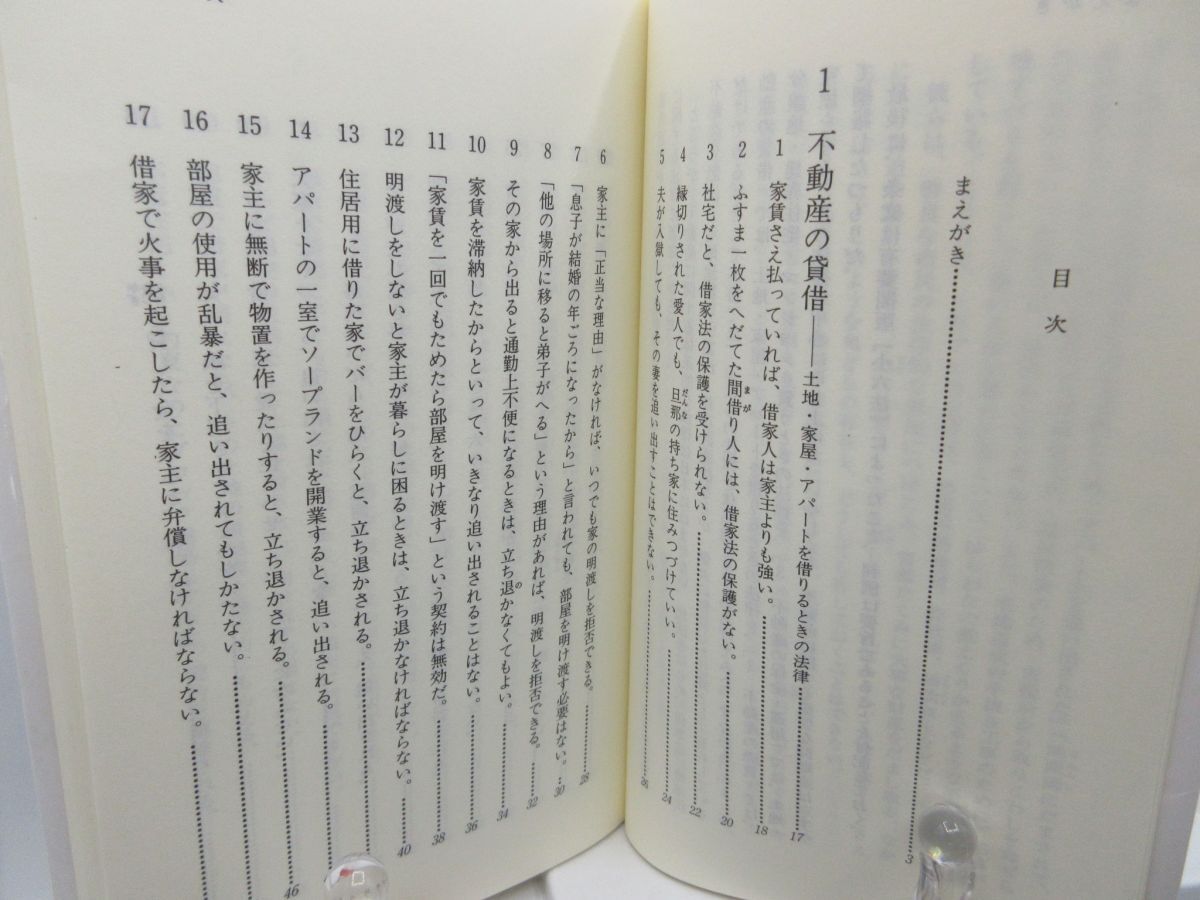 目次
まえがき……3
1 不動産の貸借──土地・家屋・アパートを借りるときの法律……17
1 家賃さえ払っていれば、借家人は家主よりも強い。……18
2 ふすま一枚をへだてた間借り人には、借家法の保護がない。……20
まが
3 社宅だと、借家法の保護を受けられない。……22
4 縁切りされた愛人でも、旦那の持ち家に住みつづけていい。……24
だんな
5 夫が入獄しても、その妻を追い出すことはできない。……26
6 家主に「正当な理由」がなければ、いつでも家の明渡しを拒否できる。……28
7 「息子が結婚の年ごろになったから」と言われても、部屋を明け渡す必要はない。…30
8 「他の場所に移ると弟子がへる」という理由があれば、明渡しを拒否できる。……32
9 その家から出ると通勤上不便になるときは、立ち退かなくてもよい。……34
の
10 家賃を滞納したからといって、いきなり追い出されることはない。……36
11 「家賃を一回でもためたら部屋を明け渡す」という契約は無効だ。……38
12 明渡しをしないと家主が暮らしに困るときは、立ち退かなければならない。……40
13 住居用に借りた家でバーをひらくと、立ち退かされる。……
14 アパートの一室でソープランドを開業すると、追い出される。……
15 家主に無断で物置を作ったりすると、立ち退かされる。……46
16 部屋の使用が乱暴だと、追い出されてもしかたない。……
17 借家で火事を起こしたら、家主に弁償しなければならない。……